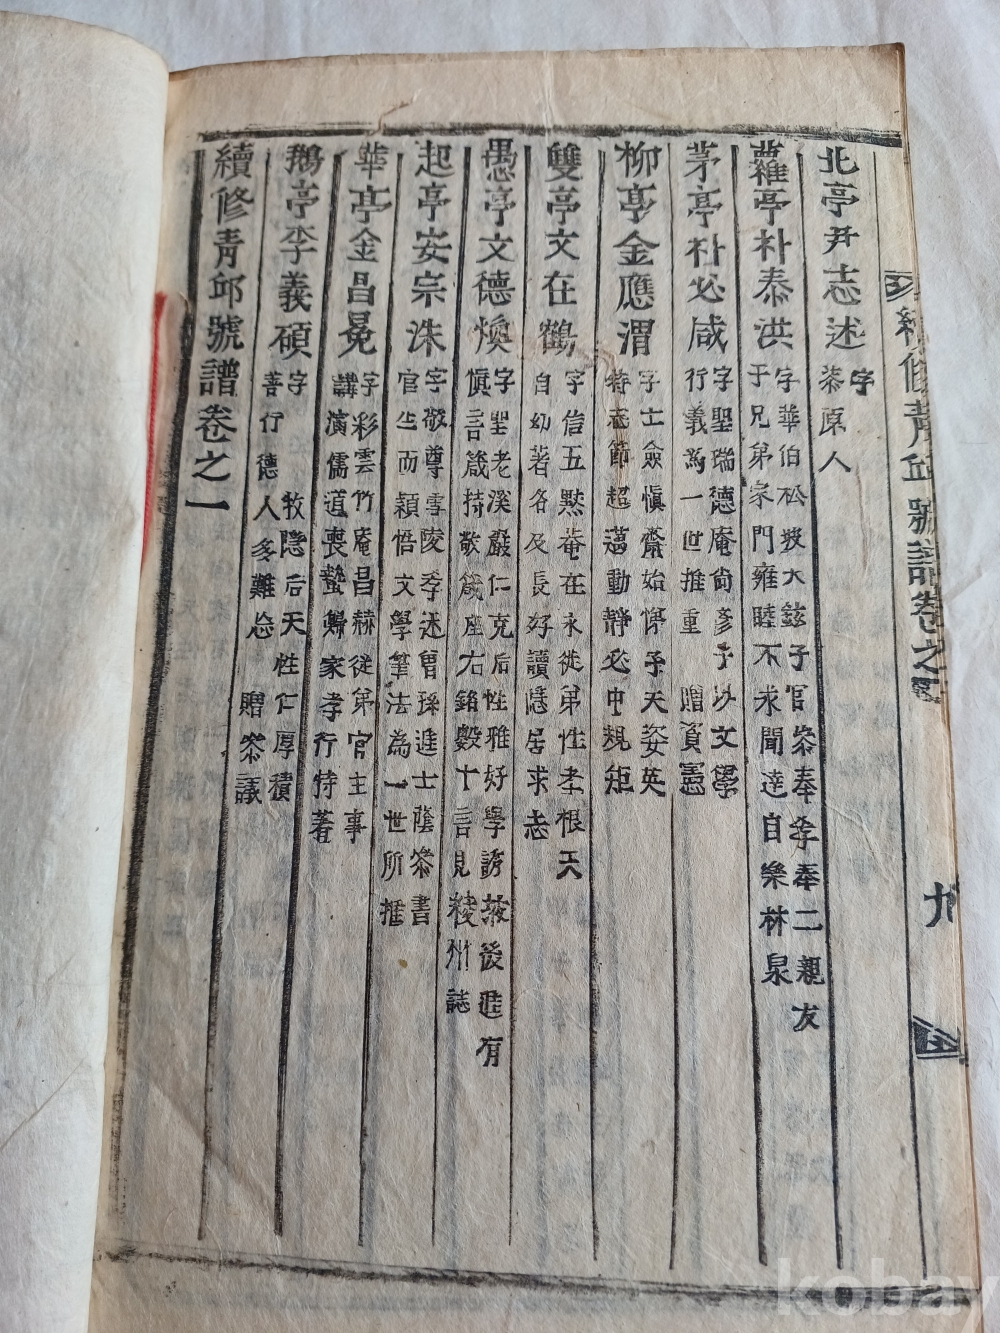 續修青丘號譜卷之一
九
北亭尹志述 字
恭原人
蘿亭朴泰洪 字華伯松坡大鉉子官參奉孝奉二親友
于兄弟家門雍睦不求聞達自樂林泉
茅亭朴必咸 字聖瑞德庵尙彥予以文學
行義爲一世推重 贈資憲
柳亭金應渭 字士僉愼齋始 子天姿英
特志節超邁動靜必中規矩
雙亭文在鶴 字信五默菴在永從弟性孝根天
自幼著名及長好讀隱居求志
愚亭文德煥 字聖老溪巖仁克后性雅好學誘掖後進有
愼言箴持敬箴座右銘數十言見稜州誌
起亭安宗洙 字敬尊雪陵季 曾孫進士蔭參書
官生而穎悟文學筆法為一世所推
華亭金昌冕 字彩雲竹庵昌赫從弟官主事
講演儒道喪蟄歸家孝行特著
鵝亭李義碩 字 牧隱后天性仁厚積
善行德人多難忘 贈參議
續修靑邱號譜卷之一
kobay